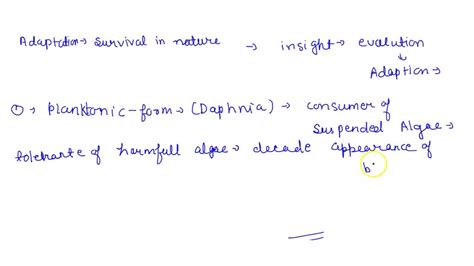 Adaptation → survival in nature → insight → evalution
↓
Adaption →
① → planktonic-form → (Daphnia) → consumer of
suspended Algae →
tolerante of harmfull algae → decade appearance of
b